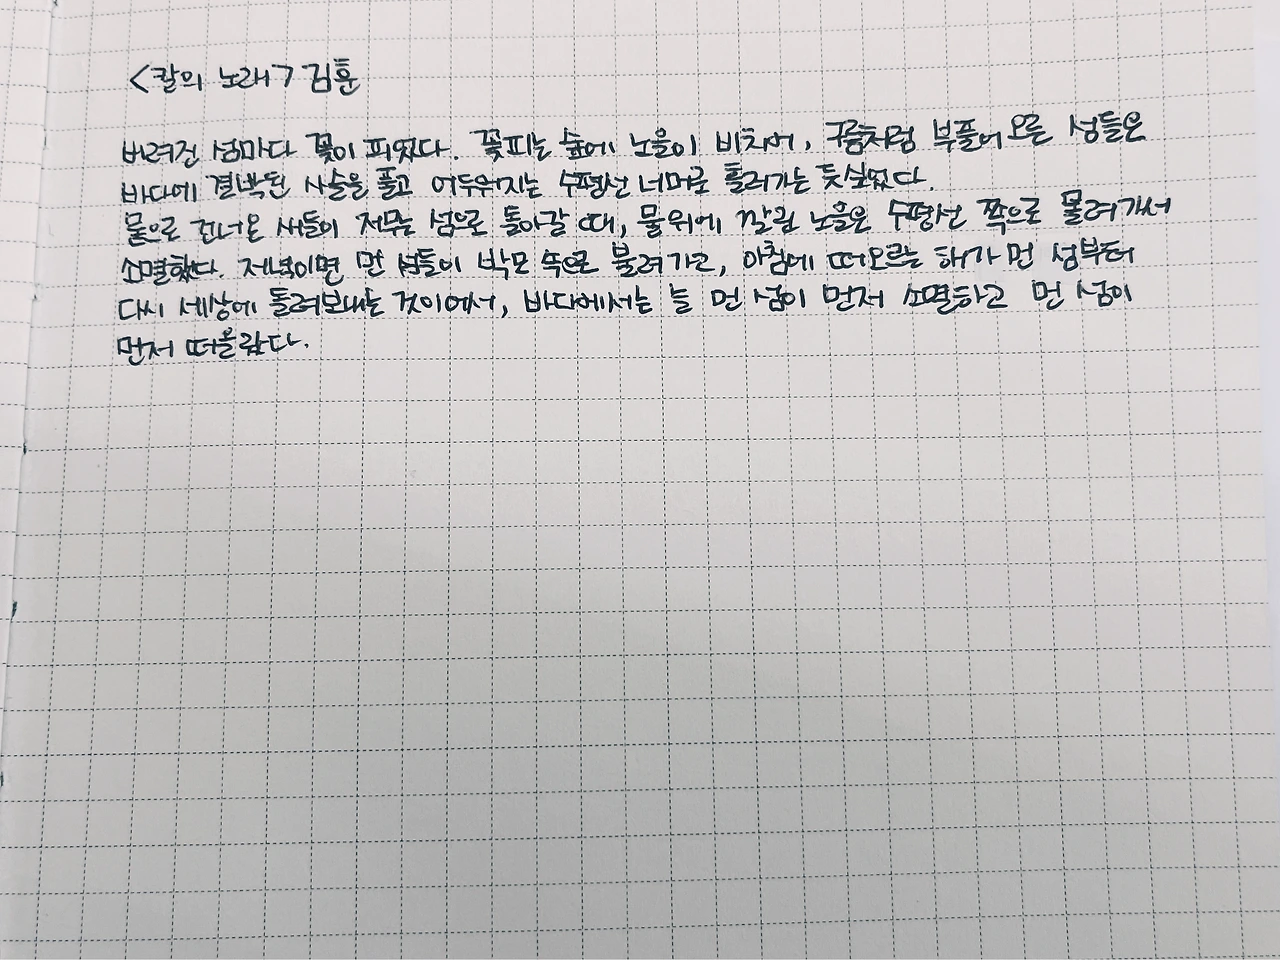 <칼의 노래> 김훈
버려진 섬마다 꽃이 피었다. 꽃피는 숲에 노을이 비치어, 구름처럼 부풀어 오른 섬들은
바다에 결박된 사슬을 풀고 어두워지는 수평선 너머로 흘러가는 듯싶었다.
뭍으로 건너온 새들이 저무는 섬으로 돌아갈 때, 물위에 깔린 노을은 수평선 쪽으로 몰려가서
소멸했다. 저녁이면 먼 섬들이 박모 속으로 불려가고, 아침에 떠오르는 해가 먼 섬부터
다시 세상에 돌려보내는 것이어서, 바다에서는 늘 먼 섬이 먼저 소멸하고 먼 섬이
먼저 떠올랐다.